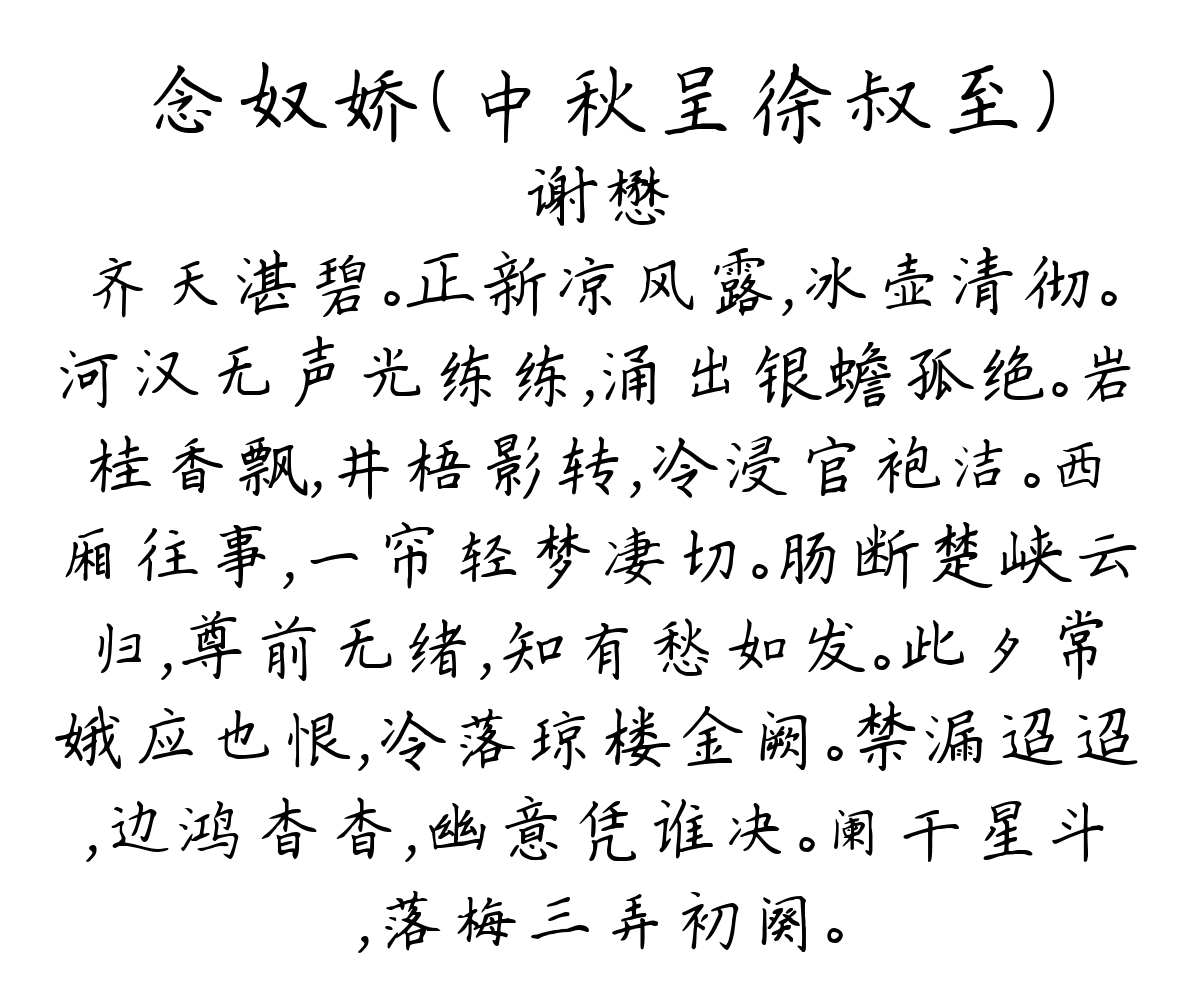 念奴娇(中秋呈徐叔至)
谢懋
齐天湛碧。正新凉风露,冰壶清彻。
河汉无声光练练,涌出银蟾孤绝。岩
桂香飘,井梧影转,冷浸宫袍洁。西
厢往事,一帘轻梦凄切。肠断楚峡云
归,尊前无绪,知有愁如发。此夕常
娥应也恨,冷落琼楼金阙。禁漏迢迢
,边鸿杳杳,幽意凭谁决。阑干星斗
,落梅三弄初阕。